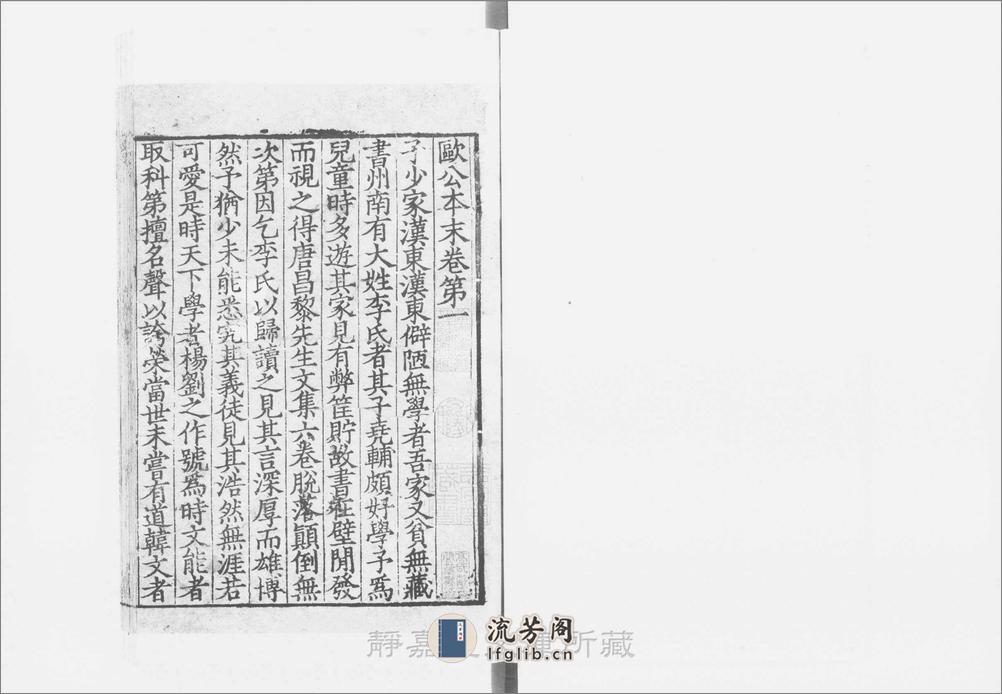 歐公本末卷第一
予少家漢東漢東僻陋無學者吾家又貧無藏
書州南有大姓李氏者其子堯輔頗好學予爲
兒童時多遊其家見有弊筐貯故書在壁閒發
而視之得唐昌黎先生文集六卷脫落顛倒無
次第因乞李氏以歸讀之見其言深厚而雄博
然予猶少未能悉究其義徒見其浩然無涯若
可愛是時天下學者楊劉之作號爲時文能者
取科第擅名聲以誇榮當世未嘗有道韓文者
靜嘉 所藏
流芳阁
lfglib.cn